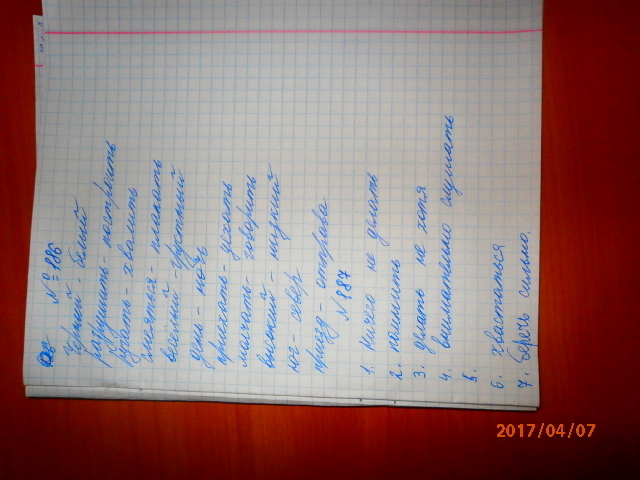 № 186
Чёрный - белый
разрушить - построить
ругать - хвалить
смеяться - плакать
весёлый - грустный
день - ночь
приехать - уехать
молчать - говорить
высокий - низкий
юг - север
приезд - отправа
№ 187
1. Ничего не делать
2. помнить
3. делать не хотя
4. внимательно слушать
5.
6. хваститься
7. Беречь сильно.
2017/04/07